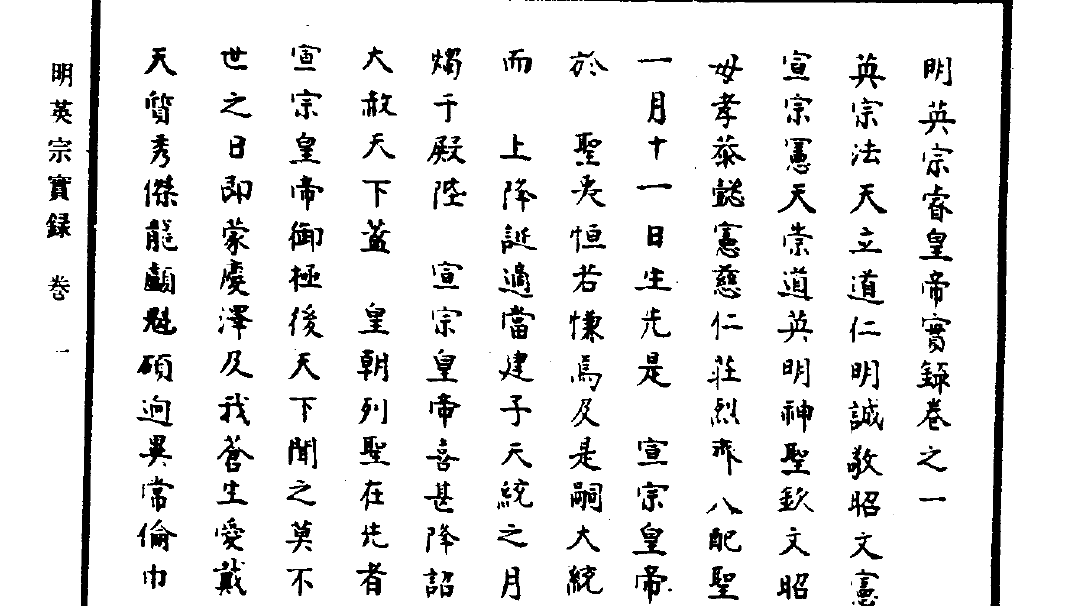 明英宗睿皇帝實錄卷之一
英宗法天立道仁明誠敬昭文憲
宣宗憲天崇道英明神聖欽文昭
母孝恭懿憲慈仁莊烈齊 配聖
一月十一日生先是 宣宗皇帝
於 聖 恒若慊焉及是嗣大統
而 上降誕適當建子天統之月
燭于殿陛 宣宗皇帝喜甚降詔
大赦天下蓋 皇朝列聖在先者
宣宗皇帝御極後天下聞之莫不
世之日即蒙慶澤及我蒼生愛戴
天質秀傑龍顱魁碩迥異常倫巾
明英宗實錄 卷 一